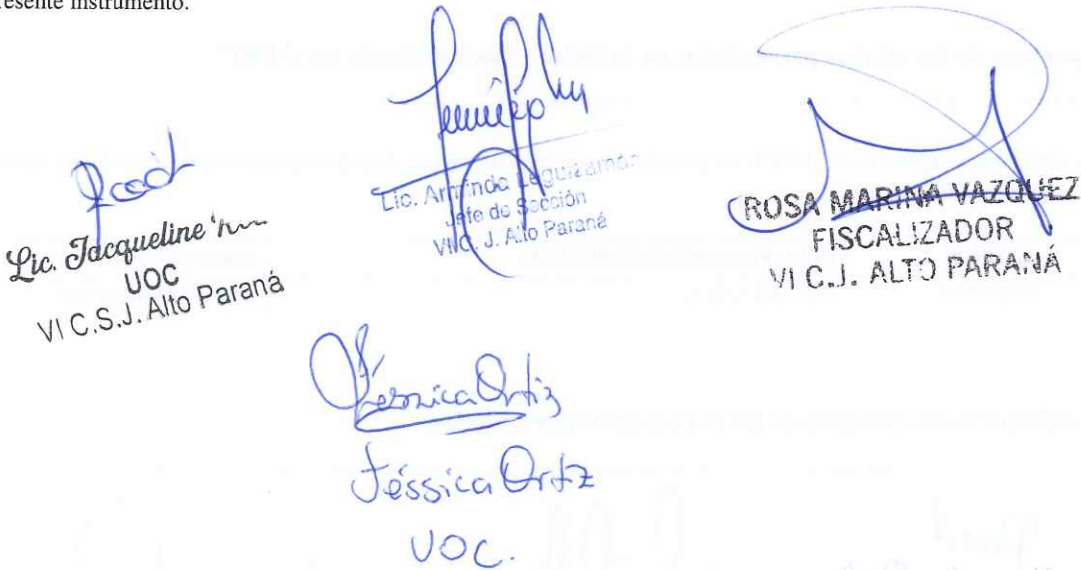 resente instrumento.
Lic. Jacqueline
UOC
VI C.S.J. Alto Paraná
Lic. Armindo Leguizamón
Jefe de Sección
VI C. J. Alto Paraná
ROSA MARINA VAZQUEZ
FISCALIZADOR
VI C.J. ALTO PARANÁ
Jéssica Ortiz
Jéssica Ortiz
UOC.